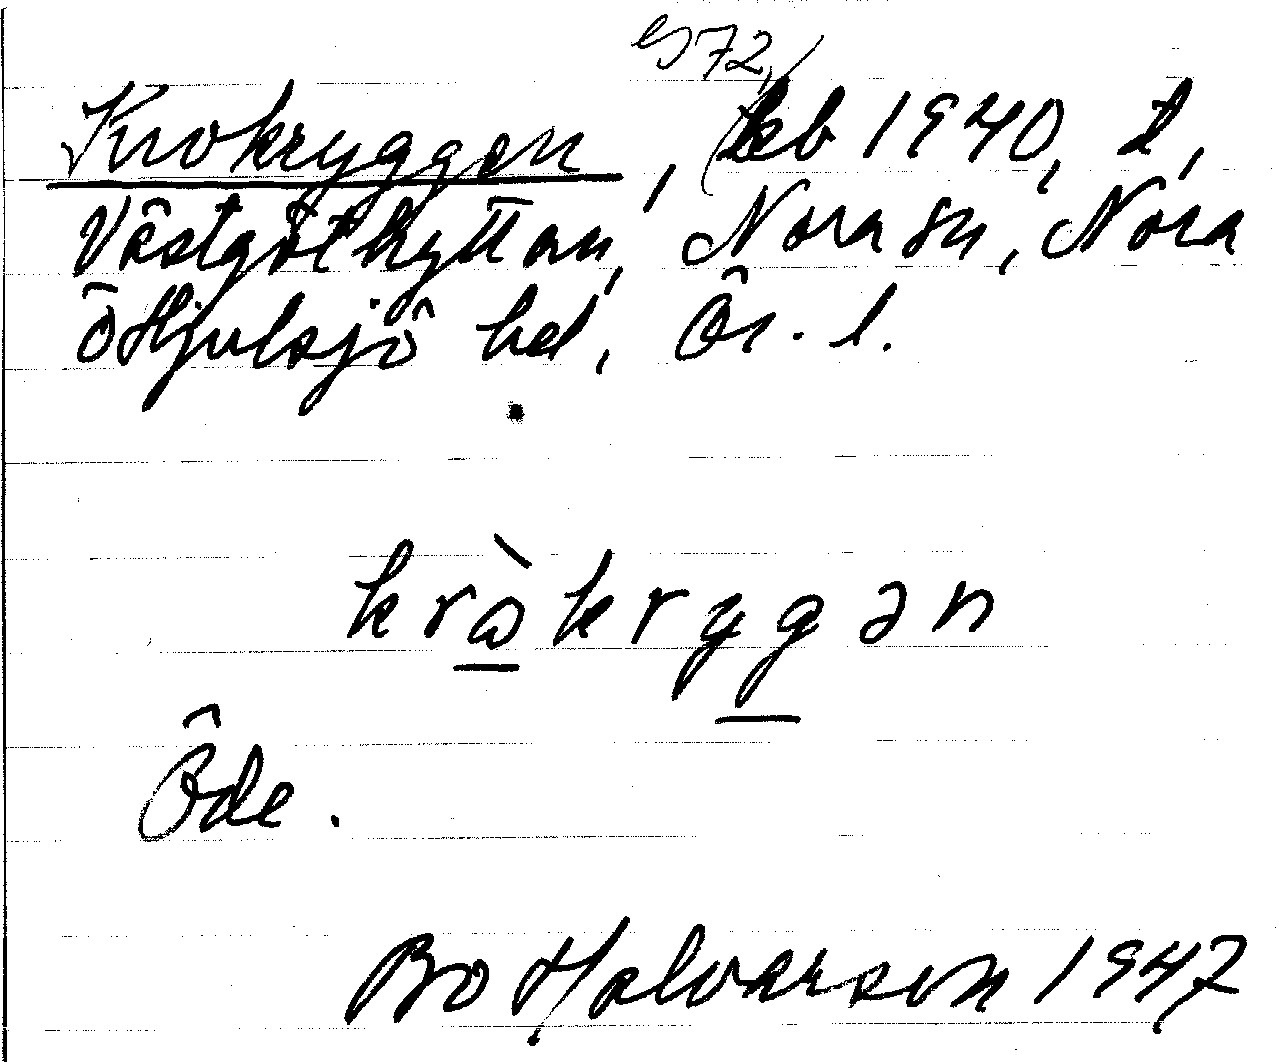 572,
Krokryggen, keb 1940, t,
Västgöthyttan, Nora sn, Nora
o Hjulsjö hd, Ör. l.
kràkrygən
Öde.
Bo Halvarson 1947